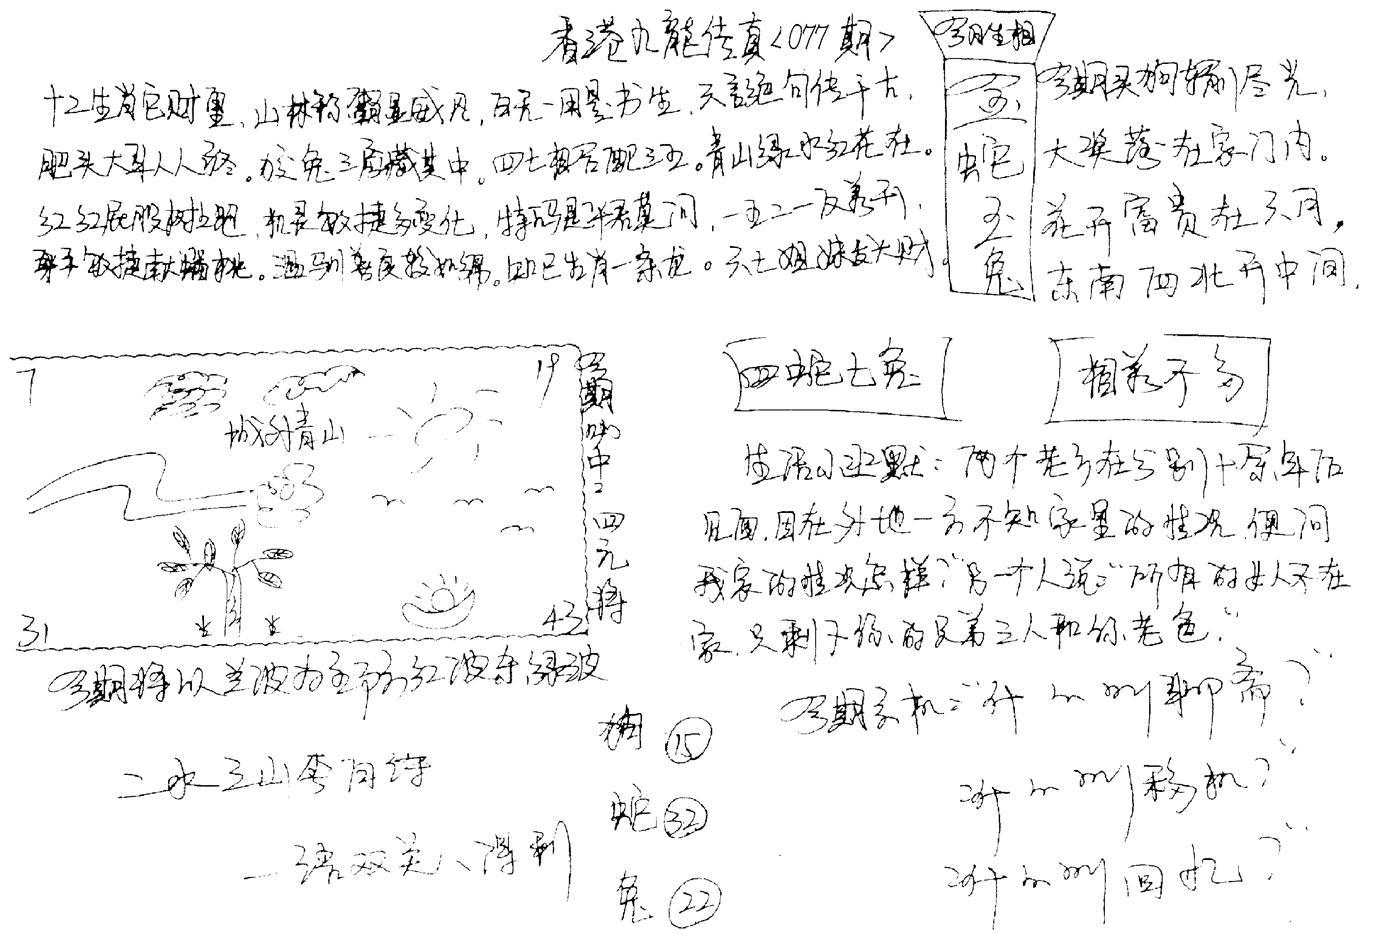 香港九龍传真<077期>
今期生相
金蛇玉兔
十二生肖它财星、山林称霸显威风,百无一用是书生,天言绝句传千古,
肥头大耳人人爱。龙兔三窟藏其中。四七相合配三五。青山绿水红花在。
红红屁股树上爬,机灵敏捷多变化,特码是单君莫问,一五二一反着刊,
敏捷献蟠桃。温驯善良软如绵。四巴生肖一条龙。天七姐妹发大财。
今期买狗输尽光,
大奖落在家门内。
花开富贵在六月,
东南西北开中间,
7
19
城外青山
31
43
今期必中四元将
今期将以兰波为主防红波杀绿波
二水三山李白诗
一语双关、得利
狗 15
蛇 32
兔 22
四蛇七兔
相差不多
生活小幽默:两个老乡在分别十余年后
见面,因在外地一方不知家里的情况,便问
我家的情况怎样?"另一个人说:"所有的女人不在
家,只剩下你的兄弟三人和你老爸."
今期玄机:"什么叫聊斋?"
什么叫移机?"
什么叫回忆?"